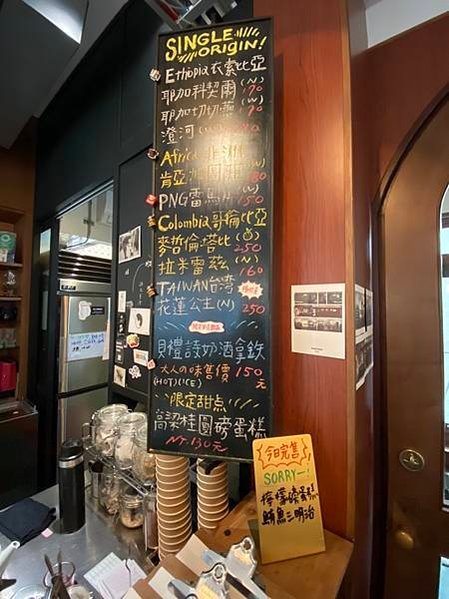 SINGLE
ORIGIN!
Ethiopia衣索比亞
耶加科契爾(N)
170
耶加切切蕾(W)
170
澄河
Africa 非洲
肯亞
180
PNG
150
Colombia哥倫比亞
麥哲倫塔比
250
拉米雷茲(N)
160
TAIWAN台灣
花蓮公主(N) 250
貝禮詩奶酒拿鐵
大人の味售價150
(HOT)(ICE) 元
限定甜点
高梁桂圓磅蛋糕
NT.130元
今日完售
SORRY~!
檸檬磅蛋糕
鮪魚三明治